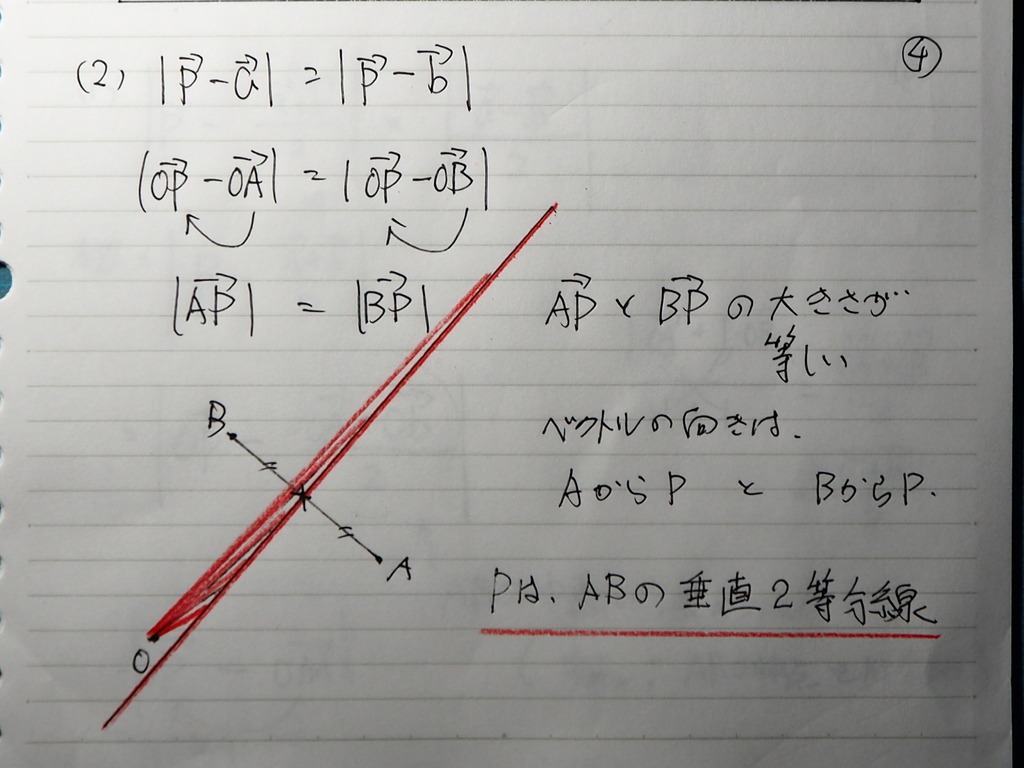 ④
(2) |p⃗ − a⃗| = |p⃗ − b⃗|
|OP⃗ − OA⃗| = |OP⃗ − OB⃗|
|AP⃗| = |BP⃗|
AP⃗ と BP⃗ の 大きさが
等しい
ベクトルの向きは.
AからP と BからP.
B
A
O
Pは、ABの垂直2等分線